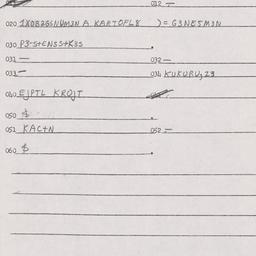 032 —
020 1XOB26GNUM3N A KARTOFL8 )= G3NE5M3N
030 P3-S+ENSS+K3S .
031 — 032 —
033 — 034 KUKURU,23
040 EJPTL KROJT
050 $ .
051 KAC+N 052 —
060 $ .